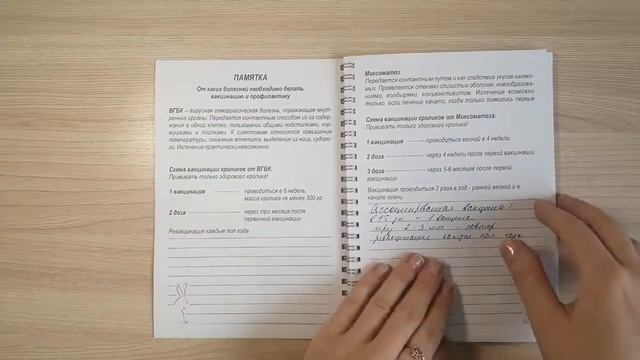 ПАМЯТКА
От каких болезней необходимо делать
вакцинацию и профилактику
ВГБК – вирусная геморрагическая болезнь, поражающая внут-
ренние органы. Передается контактным способом из-за содер-
жания в одной клетке, пользовании общими подстилками, кор-
мушками и поилками. К симптомам относится повышение
температуры, снижение аппетита, выделения из носа, судоро-
ги. Излечение практически невозможно.
Схема вакцинации кроликов от ВГБК:
Прививать только здорового кролика!
1 вакцинация проводиться в 6 недель,
масса кролика не менее 500 гр
2 доза через три месяца после
первичной вакцинации
Ревакцинация каждые пол года
Миксоматоз.
Передается контактным путем и как следствие укусов насеко-
мых. Проявляется отеками слизистых оболочек, новообразова-
ниями, волдырями, конъюнктивитом. Излечение возможно
только, если лечение начато, когда только появились первые
Схема вакцинации кроликов от Миксоматоза:
Прививать только здорового кролика!
1 вакцинация проводиться весной в 4 недели
2 доза через 4 недели после первой вакцинации
3 доза через 5-6 месяцев после первой
вакцинации
Вакцинация проводиться 2 раза в год - ранней весной и в
начале осени.
Ассоциированная вакцина:
в 45 дн. – 1 вакцина
2-3 мес – повтор
ревакцинация каждые пол года